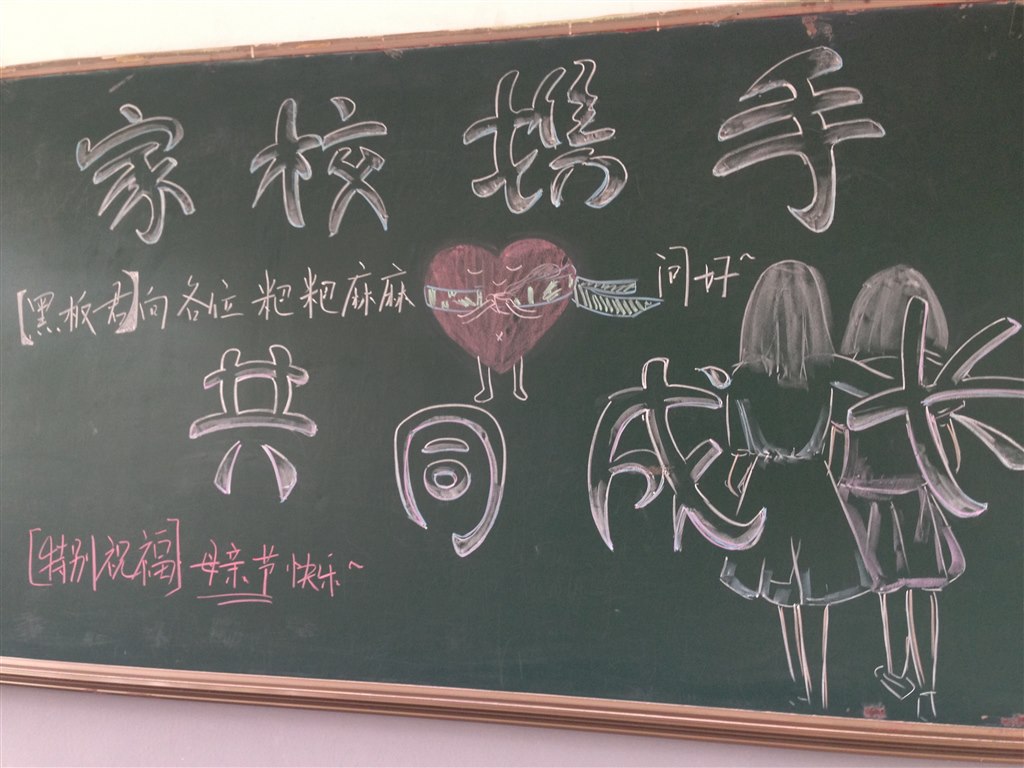 家校携手
[黑板君]向各位粑粑麻麻问好~
共同成长
[特别祝福]母亲节快乐~